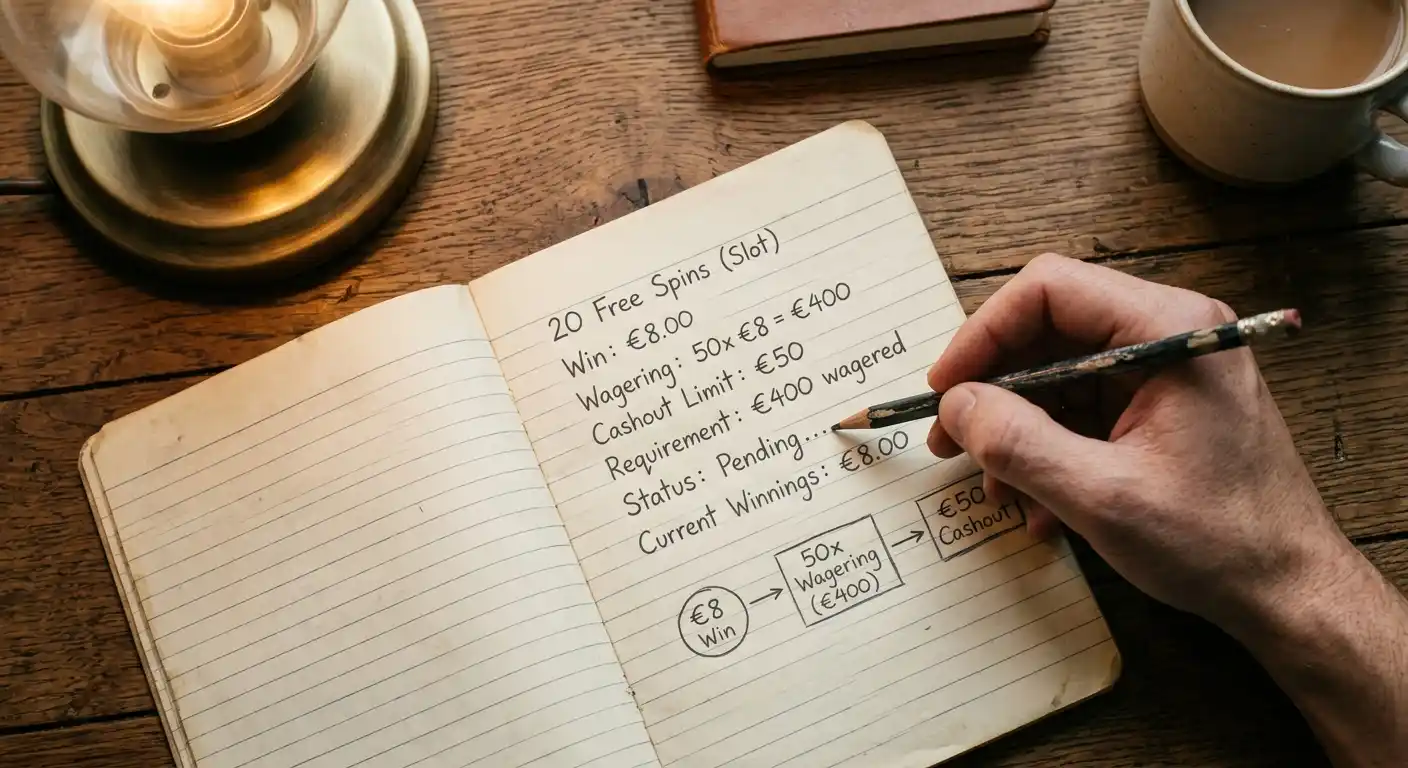 20 Free Spins (Slot)
Win: €8.00
Wagering: 50x €8 = €400
Cashout Limit: €50
Requirement: €400 wagered
Status: Pending....
Current Winnings: €8.00
€8
Win
50x
Wagering
(€400)
€50
Cashout